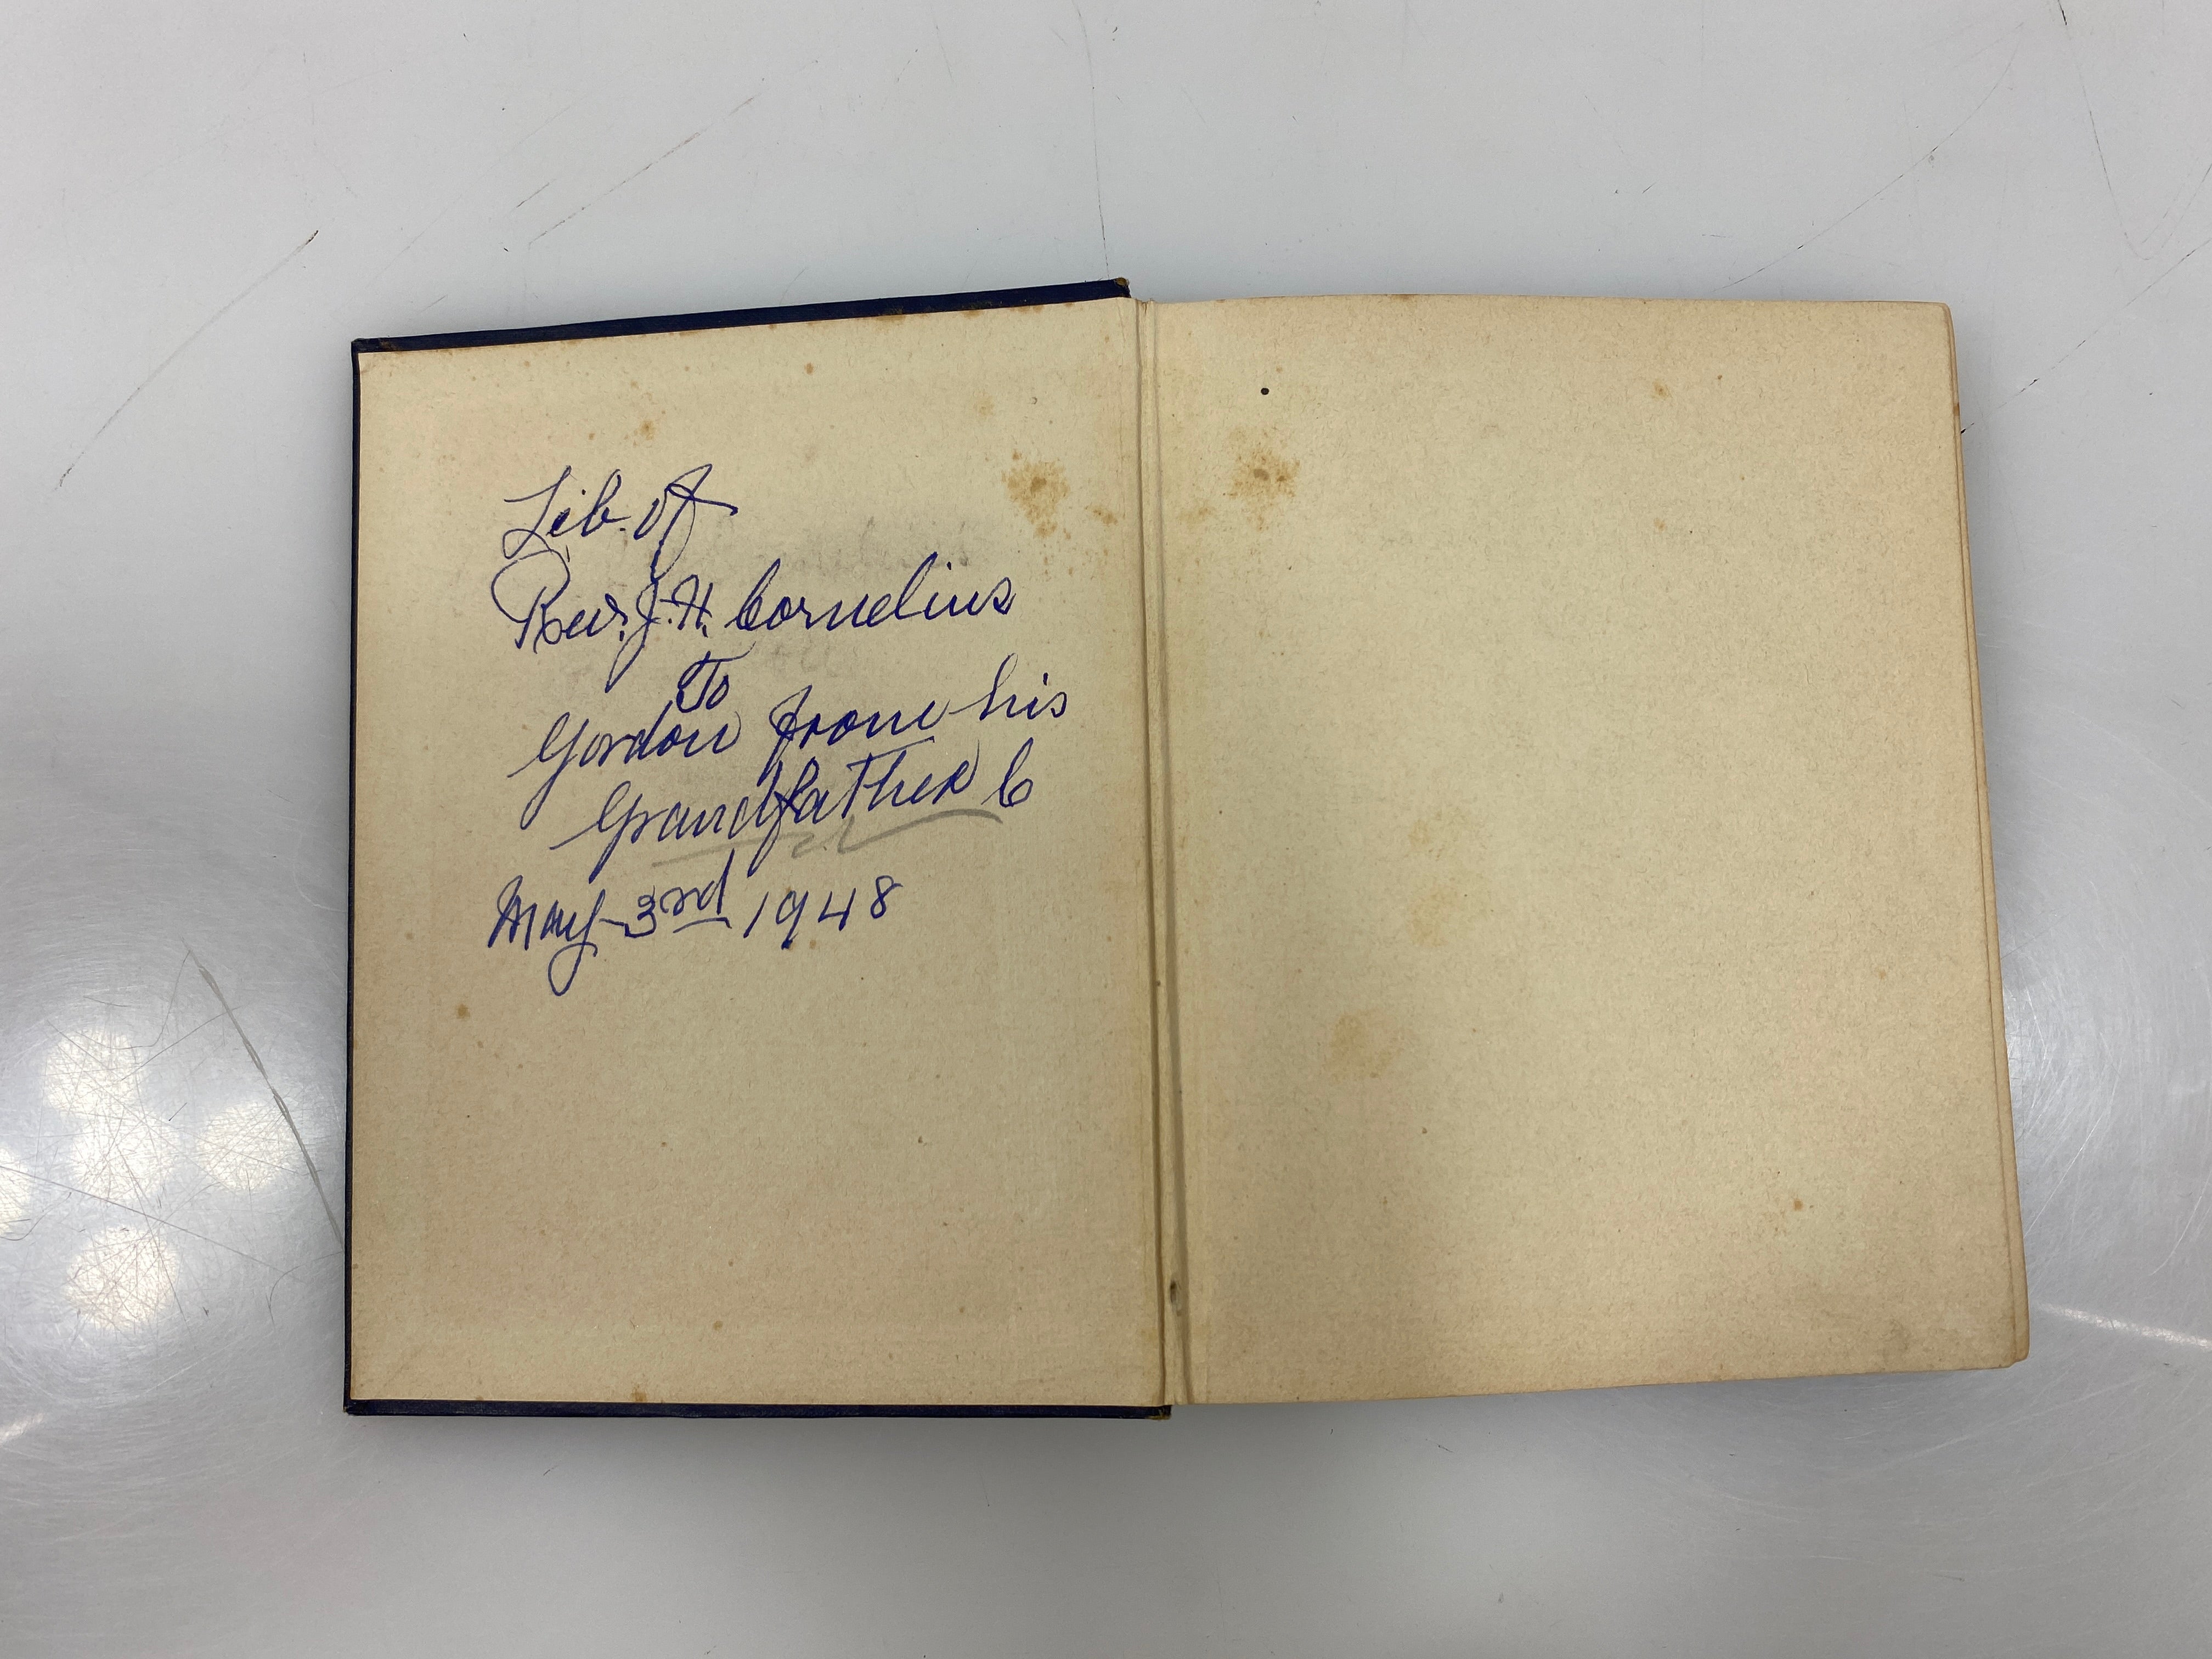 Lib. of
Rev. J. H. Cornelius
To
Gordon from his
Grandfather C
May 3rd 1948